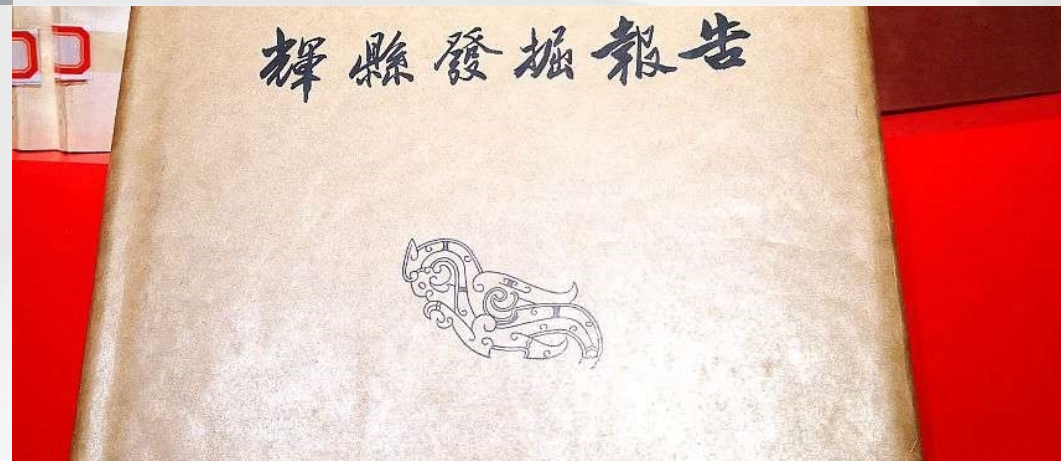 輝縣發掘報告